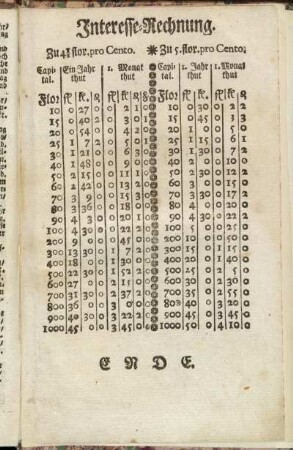 Interesse-Rechnung.
Zu 4½ flor. pro Cento. * Zu 5. flor. pro Cento.
Capital. Ein Jahr thut 1. Monat thut Capital. 1. Jahr thut 1. Monat thut
Flor: fl. kr. fl. kr. Flor: fl. kr. fl. kr.
10 0 27 0 0 2 1 10 0 30 0 2 2
15 0 40 2 0 3 1 15 0 45 0 3 3
20 0 54 0 0 4 2 20 1 0 0 5 0
25 1 7 2 0 5 2 25 1 15 0 6 1
30 1 21 0 0 6 3 30 1 30 0 7 2
40 1 48 0 0 9 0 40 2 0 0 10 0
50 2 15 0 0 11 1 50 2 30 0 12 2
60 2 42 0 0 13 2 60 3 0 0 15 0
70 3 9 0 0 15 3 70 3 30 0 17 2
80 3 36 0 0 18 0 80 4 0 0 20 0
90 4 3 0 0 20 1 90 4 30 0 22 2
100 4 30 0 0 22 2 100 5 0 0 25 0
200 9 0 0 0 45 0 200 10 0 0 50 0
300 13 30 0 1 7 2 300 15 0 1 15 0
400 18 0 0 1 30 0 400 20 0 1 40 0
500 22 30 0 1 52 2 500 25 0 2 5 0
600 27 0 0 2 15 0 600 30 0 2 30 0
700 31 30 0 2 37 2 700 35 0 2 55 0
800 36 0 0 3 0 0 800 40 0 3 20 0
900 40 30 0 3 22 2 900 45 0 3 45 0
1000 45 0 0 3 45 0 1000 50 0 4 10 0
ENDE.